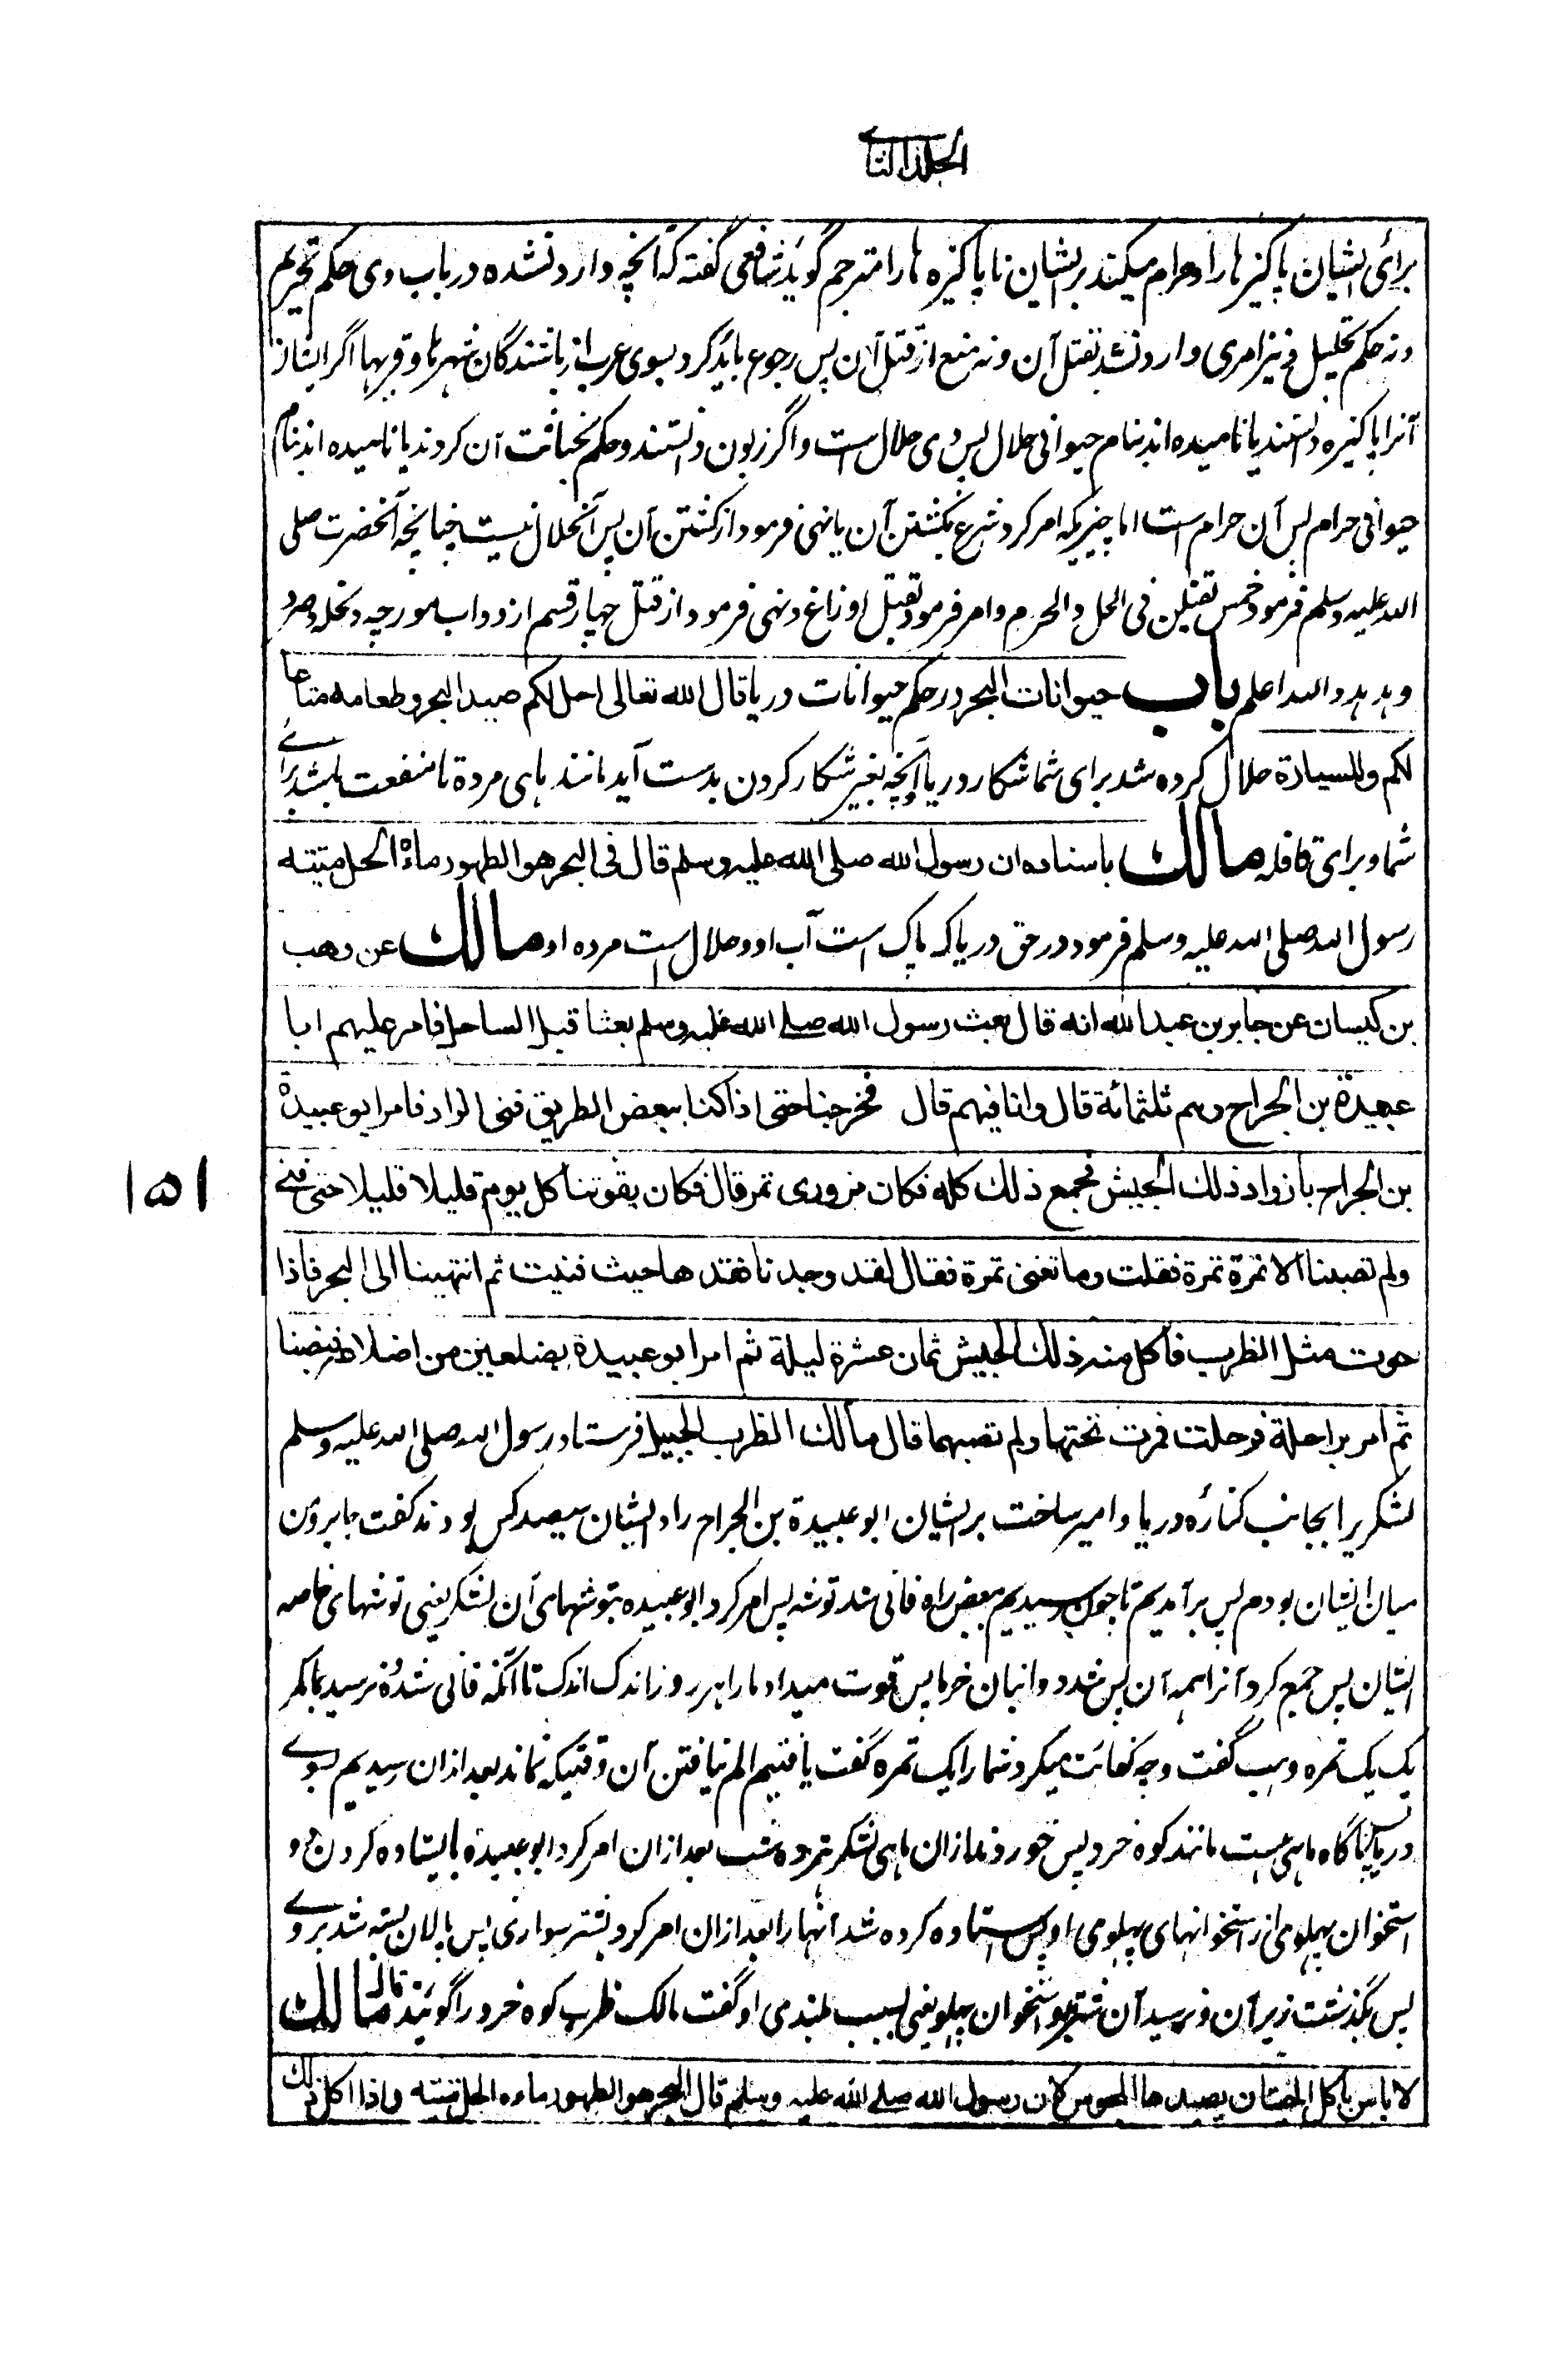 الجلد الثانی
برائی ایشان پاکیزہ ہا را و حرام میکند بر ایشان ناپاکیزہ ہا را مترجم گوید شافعی گفتہ کہ آنچہ وارد نشدہ در باب وی حکم تحریم
و نہ حکم تحلیل و نیز امری وارد نشد بقتل آن و نہ منع از قتل آن پس رجوع باید کرد بسوی عرب از باشندگان شہرہا و قریہا اگر ایشان
آنرا پاکیزہ دانستند یا نامیدہ اند بنام حیوانی حلال پس وی حلال است و اگر زبون دانستند و حکم بخباثت آن کردند یا نامیدہ اند بنام
حیوانی حرام پس آن حرام است اما چیزیکہ امر کرد شرع بکشتن آن یا نہی فرمود از کشتن آن پس آن حلال نیست چنانچہ آنحضرت صلی
اللہ علیہ وسلم فرمود خمس تقتلن فی الحل و الحرم و امر فرمود بقتل اوزاغ و نہی فرمود از قتل چہار قسم از دواب مورچہ و نحلہ و صرد
و ہدہد واللہ اعلم باب حیوانات البحر در حکم حیوانات دریا قال الله تعالی احل لکم صید البحر و طعامه متاعا
لکم وللسیارة حلال کردہ شد برای شما شکار دریا و آنچہ بغیر شکار کردن بدست آید مانند ماہی مردہ تا منفعت باشد برای
شما و برای قافلہ مالك باسناده ان رسول الله صلی الله علیه وسلم قال فی البحر هو الطهور ماءه الحل میتته
رسول اللہ صلی اللہ علیہ وسلم فرمود در حق دریا کہ پاک است آب او و حلال است مردہ او مالك عن وهب
بن کیسان عن جابر بن عبد الله انه قال بعث رسول الله صلے الله علیه وسلم بعثا قبل الساحل فامر علیهم ابا
عبیدة بن الجراح وهم ثلثمائة قال وانا فیهم قال فخرجنا حتی اذا کنا ببعض الطریق فنی الزاد فامر ابو عبیدة
بن الجراح بأزواد ذلك الجیش فجمع ذلك کله فکان مزودی تمر قال فکان یقوتنا کل یوم قلیلا قلیلا حتی فنی
ولم تصبنا الا تمرة تمرة فقلت وما تغنی تمرة فقال لقد وجدنا فقدها حیث فنیت ثم انتهینا الی البحر فاذا
حوت مثل الظرب فأکل منه ذلك الجیش ثمان عشرة لیلة ثم امر ابو عبیدة بضلعین من اضلاعه فنصبنا
ثم امر براحلة فرحلت فمرت تحتها ولم تصبهما قال مالك الظرب الجبیل فرستاد رسول اللہ صلی اللہ علیہ وسلم
لشکریرا بجانب کنارۂ دریا و امیر ساخت بر ایشان ابو عبیدة بن الجراح را و ایشان سیصد کس بودند گفت جابر و من
میان ایشان بودم پس برآمدیم تا چون رسیدیم ببعض راہ فانی شد توشہ پس امر کرد ابو عبیدہ بتوشہای آن لشکر یعنی توشہای خاصہ
ایشان پس جمع کرد آنرا ہمہ آن پس شد دو انبان خرما پس قوت میداد ما را ہر روز اندک اندک تا آنکہ فانی شد و نرسید بما مگر
یک یک تمرہ وہب گفت و چہ کفائت میکرد شما را یک تمرہ گفت یافتیم الم نیافتن آن وقتیکہ نماند بعد ازان رسیدیم بسوی
دریا پس ناگاہ ماہی ہست مانند کوہ خرد پس خوردند ازان ماہی لشکر ہژدہ شب بعد ازان امر کرد ابو عبیدہ بایستادہ کردن دو
استخوان پہلوی از استخوانہای پہلوی او پس استادہ کردہ شد آنہا را بعد ازان امر کرد بشتر سواری پس پالان بستہ شد بروی
پس بگذشت زیر آن و نرسید آن شتر بدو استخوان پہلو یعنی بسبب بلندی او گفت مالک ظرب کوہ خرد را گویند قال مالك
لا باس باکل الحیتان یصیدها المجوس لان رسول الله صلے الله علیه وسلم قال البحر هو الطهور ماءه الحل میتته واذا اکل ذلك
۱۵۱